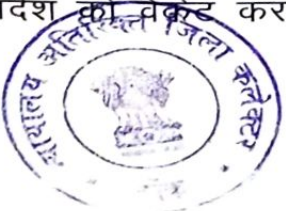 दिश को वेकेट कर
न्यायालय अतिरिक्त जिला कलेक्टर